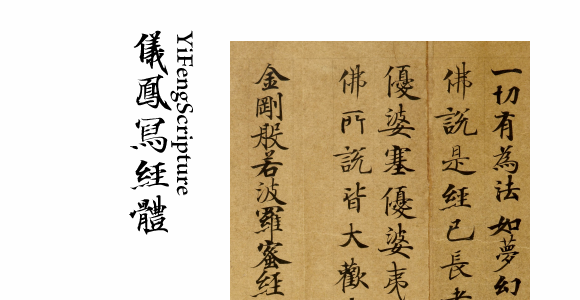 儀鳳冩經體
YiFengScripture
一切有為法如夢幻
佛說是經已長
優婆塞優婆夷
佛所說皆大歡
金剛般若波羅蜜經